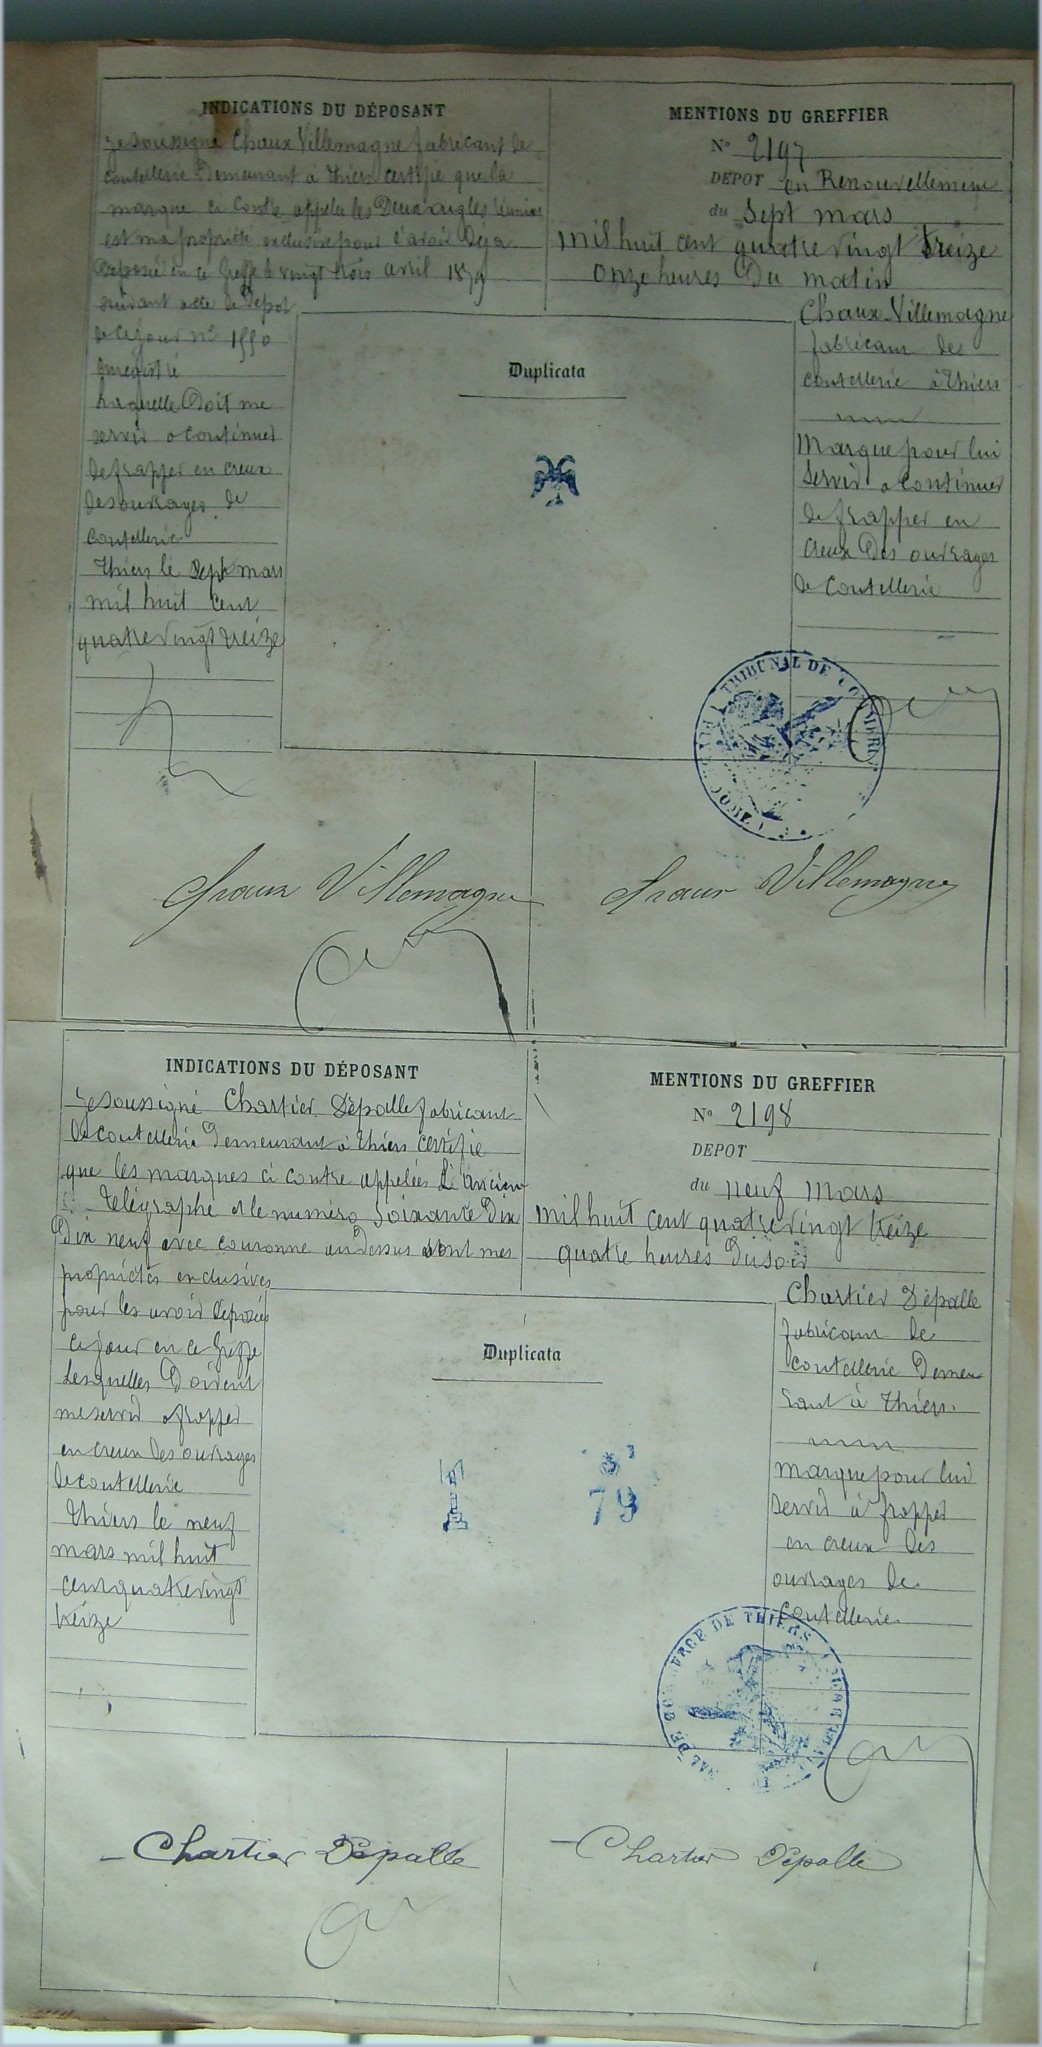 INDICATIONS DU DÉPOSANT
Je soussigné Chaux Villemagne fabricant de
coutellerie Demeurant à Thiers certifie que la
marque ci Contre appelée les Deux aigles réunies
est ma propriété exclusive pour l'avoir Déja
Déposée en ce Greffe le vingt trois avril 1879
suivant acte de Dépot
de ce jour n° 1550
enregistré
Laquelle Doit me
servir a continuer
de frapper en creux
des ouvrages de
coutellerie
Thiers le sept mars
mil huit cent
quatre vingt treize
MENTIONS DU GREFFIER
N° 2197
DÉPOT en Renouvellement
du Sept mars
mil huit cent quatre vingt treize
onze heures Du matin
Chaux Villemagne
fabricant de
coutellerie à Thiers
Marque pour lui
servir a continuer
de frapper en
creux Des ouvrages
de Coutellerie
Duplicata
TRIBUNAL DE COMMERCE
Chaux Villemagne
Chaux Villemagne
INDICATIONS DU DÉPOSANT
Je soussigné Chartier Dépalle fabricant
de coutellerie Demeurant à Thiers certifie
que les marques ci contre appelées L'ancien
Télégraphe et le numéro Soixante Dix
Dix neuf avec couronne au dessus sont mes
propriétés exclusives
pour les avoir déposées
ce jour en ce Greffe
Lesquelles Doivent
me servir a frapper
en creux des ouvrages
de coutellerie
Thiers le neuf
mars mil huit
cent quatre vingt
treize
MENTIONS DU GREFFIER
N° 2198
DÉPOT
du neuf mars
mil huit cent quatre vingt treize
quatre heures du soir
Chartier Dépalle
fabricant de
coutellerie Demeu
rant à Thiers.
marque pour lui
servir à frapper
en creux des
ouvrages de
Coutellerie
Duplicata
79
DE COMMERCE DE THIERS
Chartier Dépalle
Chartier Dépalle